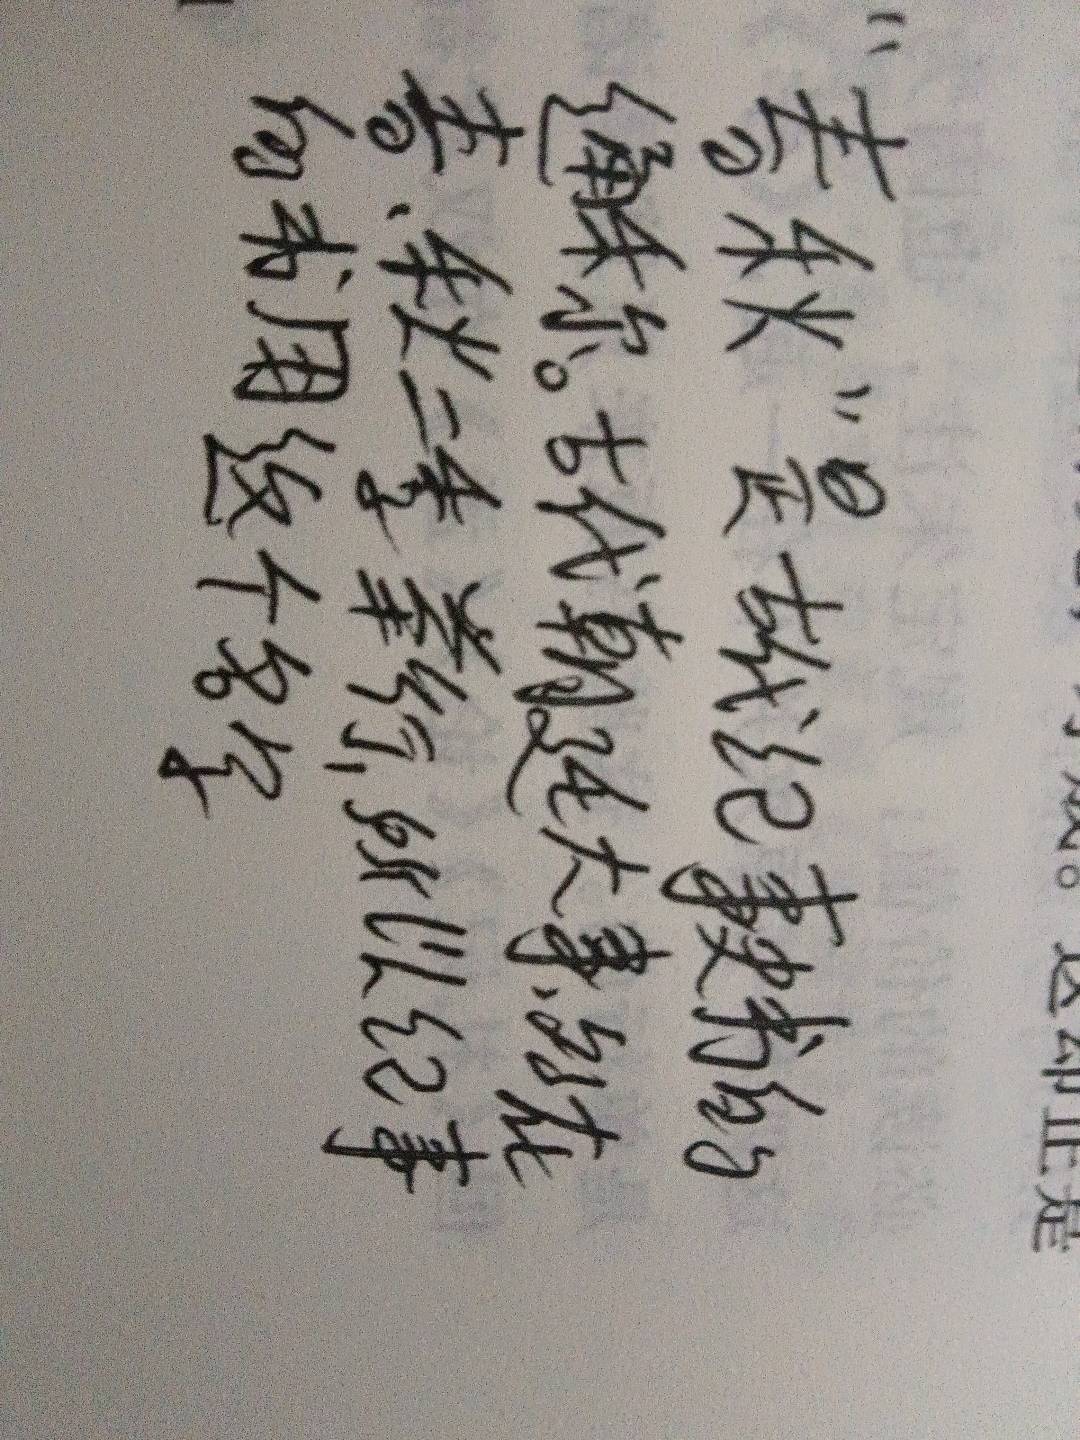 。这却正是
“春秋”是古代记事史书的
通称。古代朝廷大事,多在
春、秋二季举行,所以记事
的书用这个名字